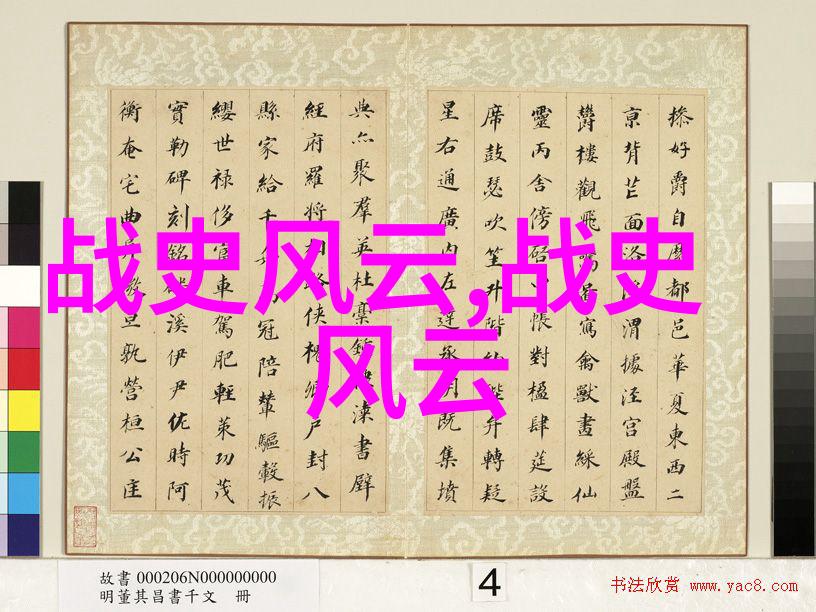 战史风云,战史
风云
操好爵自縻都邑華夏東西二
京背芒面洛浮渭據涇宮殿盤
欝樓觀飛驚圖寫禽獸畫綵仙
靈丙舍傍啓甲帳對楹肆筵設
席鼓瑟吹笙升階納陛弁轉疑
星右通廣內左達承明既集墳
典亦聚羣英杜稾鍾隸漆書壁
經府羅將相路俠槐卿戶封八
縣家給千兵高冠陪輦驅轂振
纓世祿侈富車駕肥輕策功茂
實勒碑刻銘磻溪伊尹佐時阿
衡奄宅曲阜微旦孰營桓公匡
故書 000206N000000000
明董其昌書千文 冊
4
书法欣赏 www.yac8.com